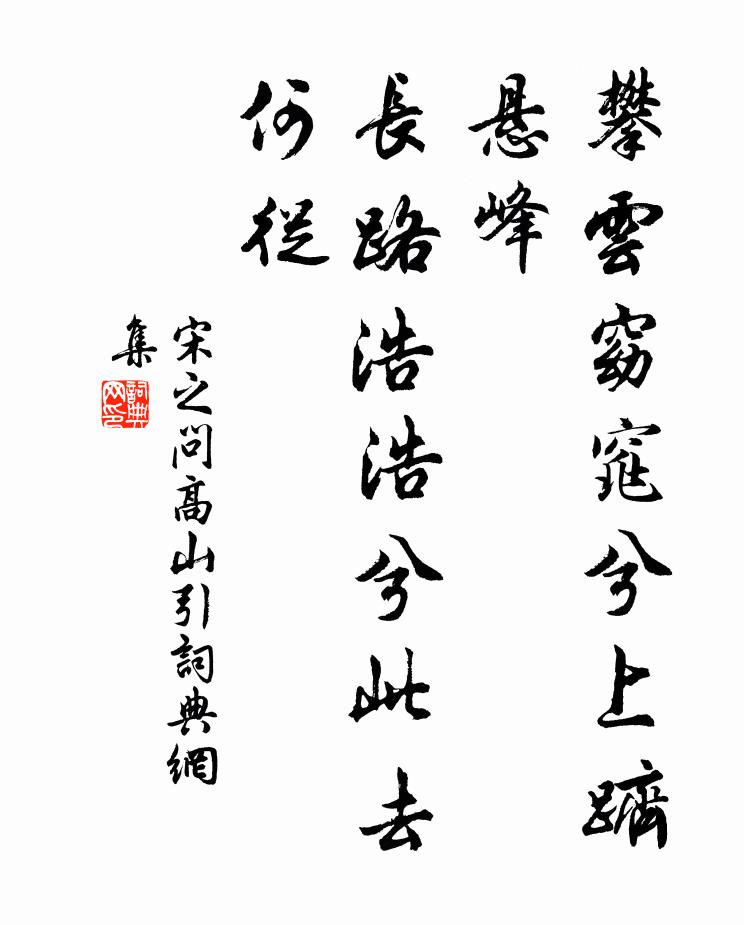 攀雲窈窕兮上躋
悬峰
長路浩浩兮此去
何從
宋之問高山引詞典網
集
詞典
网印